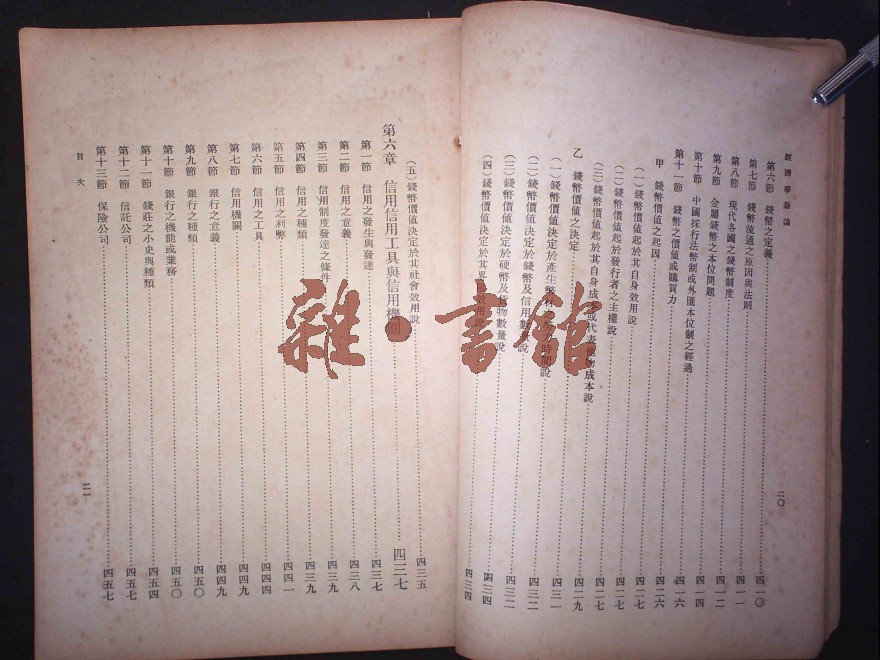 經濟學新論
第六節 錢幣之定義 四一〇
第七節 錢幣流通之原因與法則 四一一
第八節 現代各國之錢幣制度 四一二
第九節 金屬錢幣之本位問題 四一四
第十節 中國採行法幣制或外匯本位制之經過 四一六
第十一節 錢幣之價值或購買力 四二六
甲 錢幣價值之起因 四二七
(一)錢幣價值起於其自身效用說 四二七
(二)錢幣價值起於發行者之主權說 四二七
(三)錢幣價值起於其自身成本或代表 物成本說 四二九
乙 錢幣價值之決定 四三一
(一)錢幣價值決定於產生幣材 時間說 四三二
(二)錢幣價值決定於錢幣及信用數量說 四三二
(三)錢幣價值決定於硬幣及貨物數量說 四三四
(四)錢幣價值決定於其界 效用 四三四
二〇
(五)錢幣價值決定於其社會效用說 四三五
第六章 信用信用工具與信用機關 四三七
第一節 信用之發生與發達 四三七
第二節 信用之意義 四三八
第三節 信用制度發達之條件 四三九
第四節 信用之種類 四三九
第五節 信用之利弊 四四一
第六節 信用之工具 四四四
第七節 信用機關 四四九
第八節 銀行之意義 四四九
第九節 銀行之種類 四五〇
第十節 銀行之機能或業務 四五〇
第十一節 錢莊之小史與種類 四五四
第十二節 信託公司 四五七
第十三節 保險公司 四五七
目次
二一
雜·書館